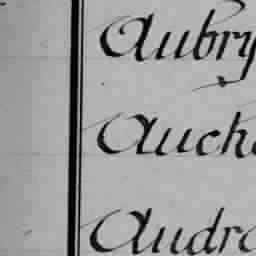 Aubry
Auch
Audr